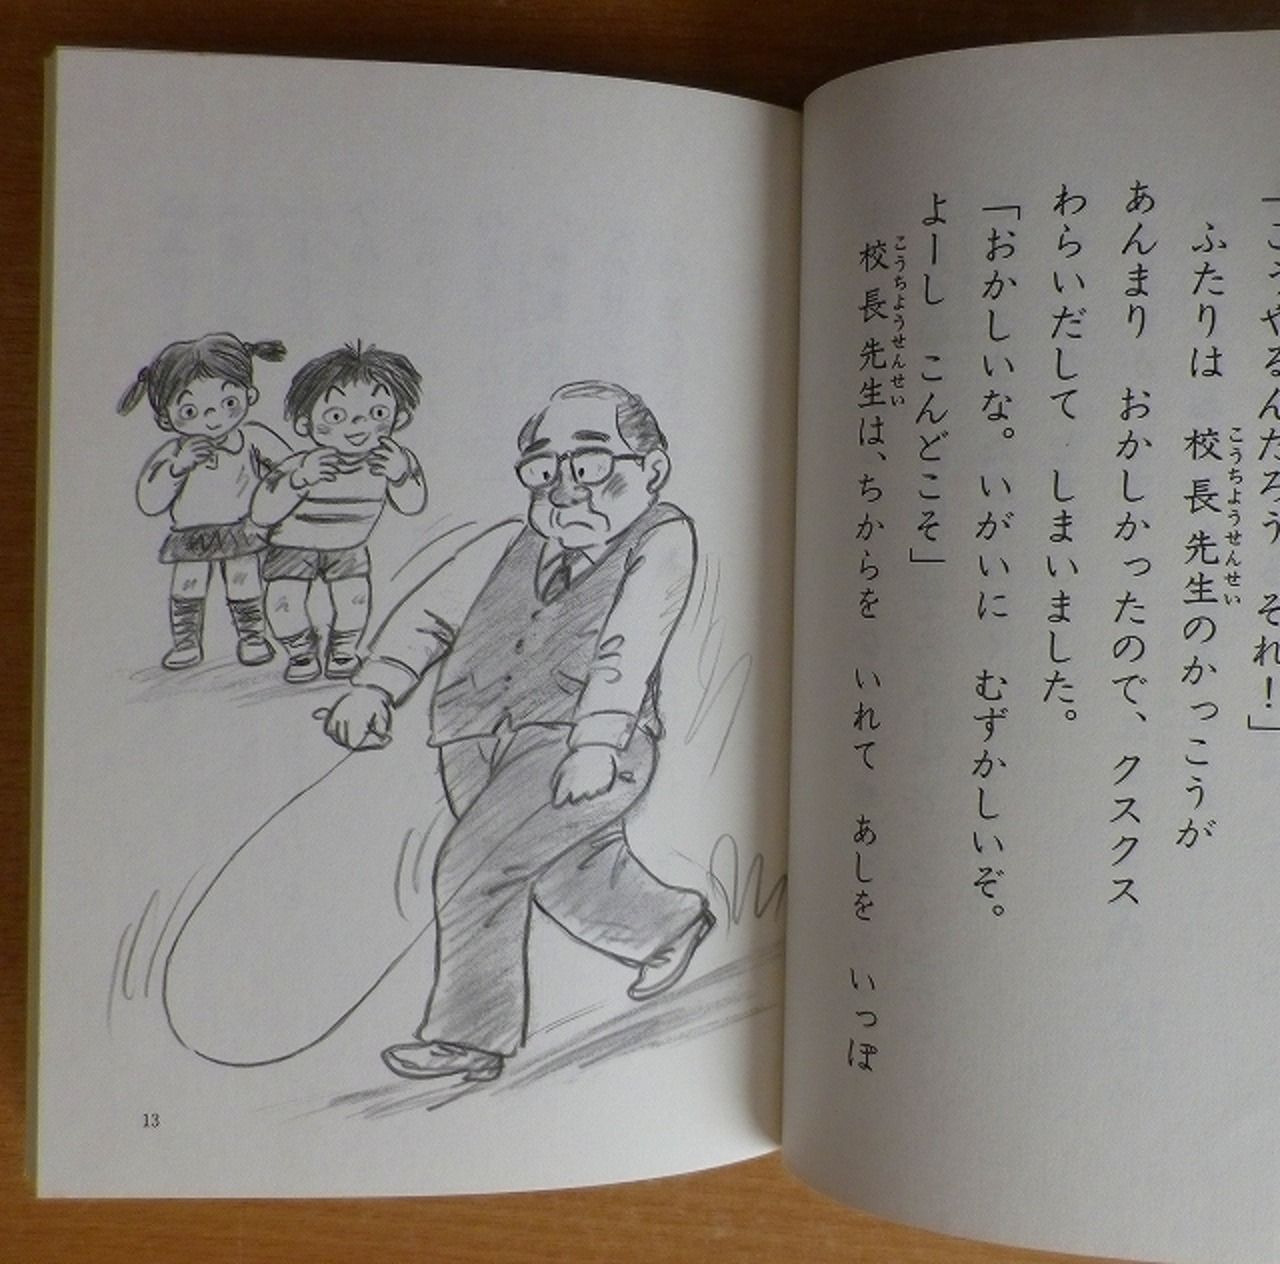 「こうやるんだろう それ!」
ふたりは 校長先生のかっこうが
こうちようせんせい
あんまり おかしかったので、クスクス
わらいだして しまいました。
「おかしいな。いがいに むずかしいぞ。
よーし こんどこそ」
校長先生は、ちからを いれて あしを いっぽ
こうちようせんせい
13